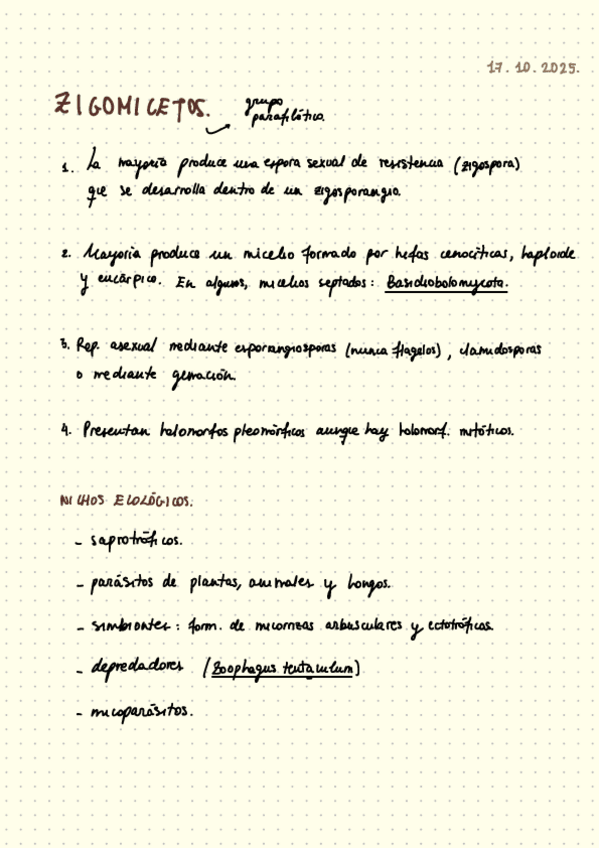 17.10.2025.
ZIGOMICETOS. grupo
parafilético.
1. La mayoría produce una espora sexual de resistencia (zigospora)
que se desarrolla dentro de un zigosporangio.
2. Mayoría produce un micelio formado por hifas cenocíticas, haploide
y eucárpico. En algunos, micelios septados: Basidiobolomycota.
3. Rep. asexual mediante esporangiosporas (nunca flagelos), clamidosporas
o mediante gemación.
4. Presentan holomorfos pleomórficos aunque hay holomorf. mitóticos.
NICHOS ECOLÓGICOS.
- saprotróficos.
- parásitos de plantas, animales y hongos.
- simbiontes: form. de micorrizas arbusculares y ectotróficas.
- depredadores (Zoophagus tentaculum)
- micoparásitos.